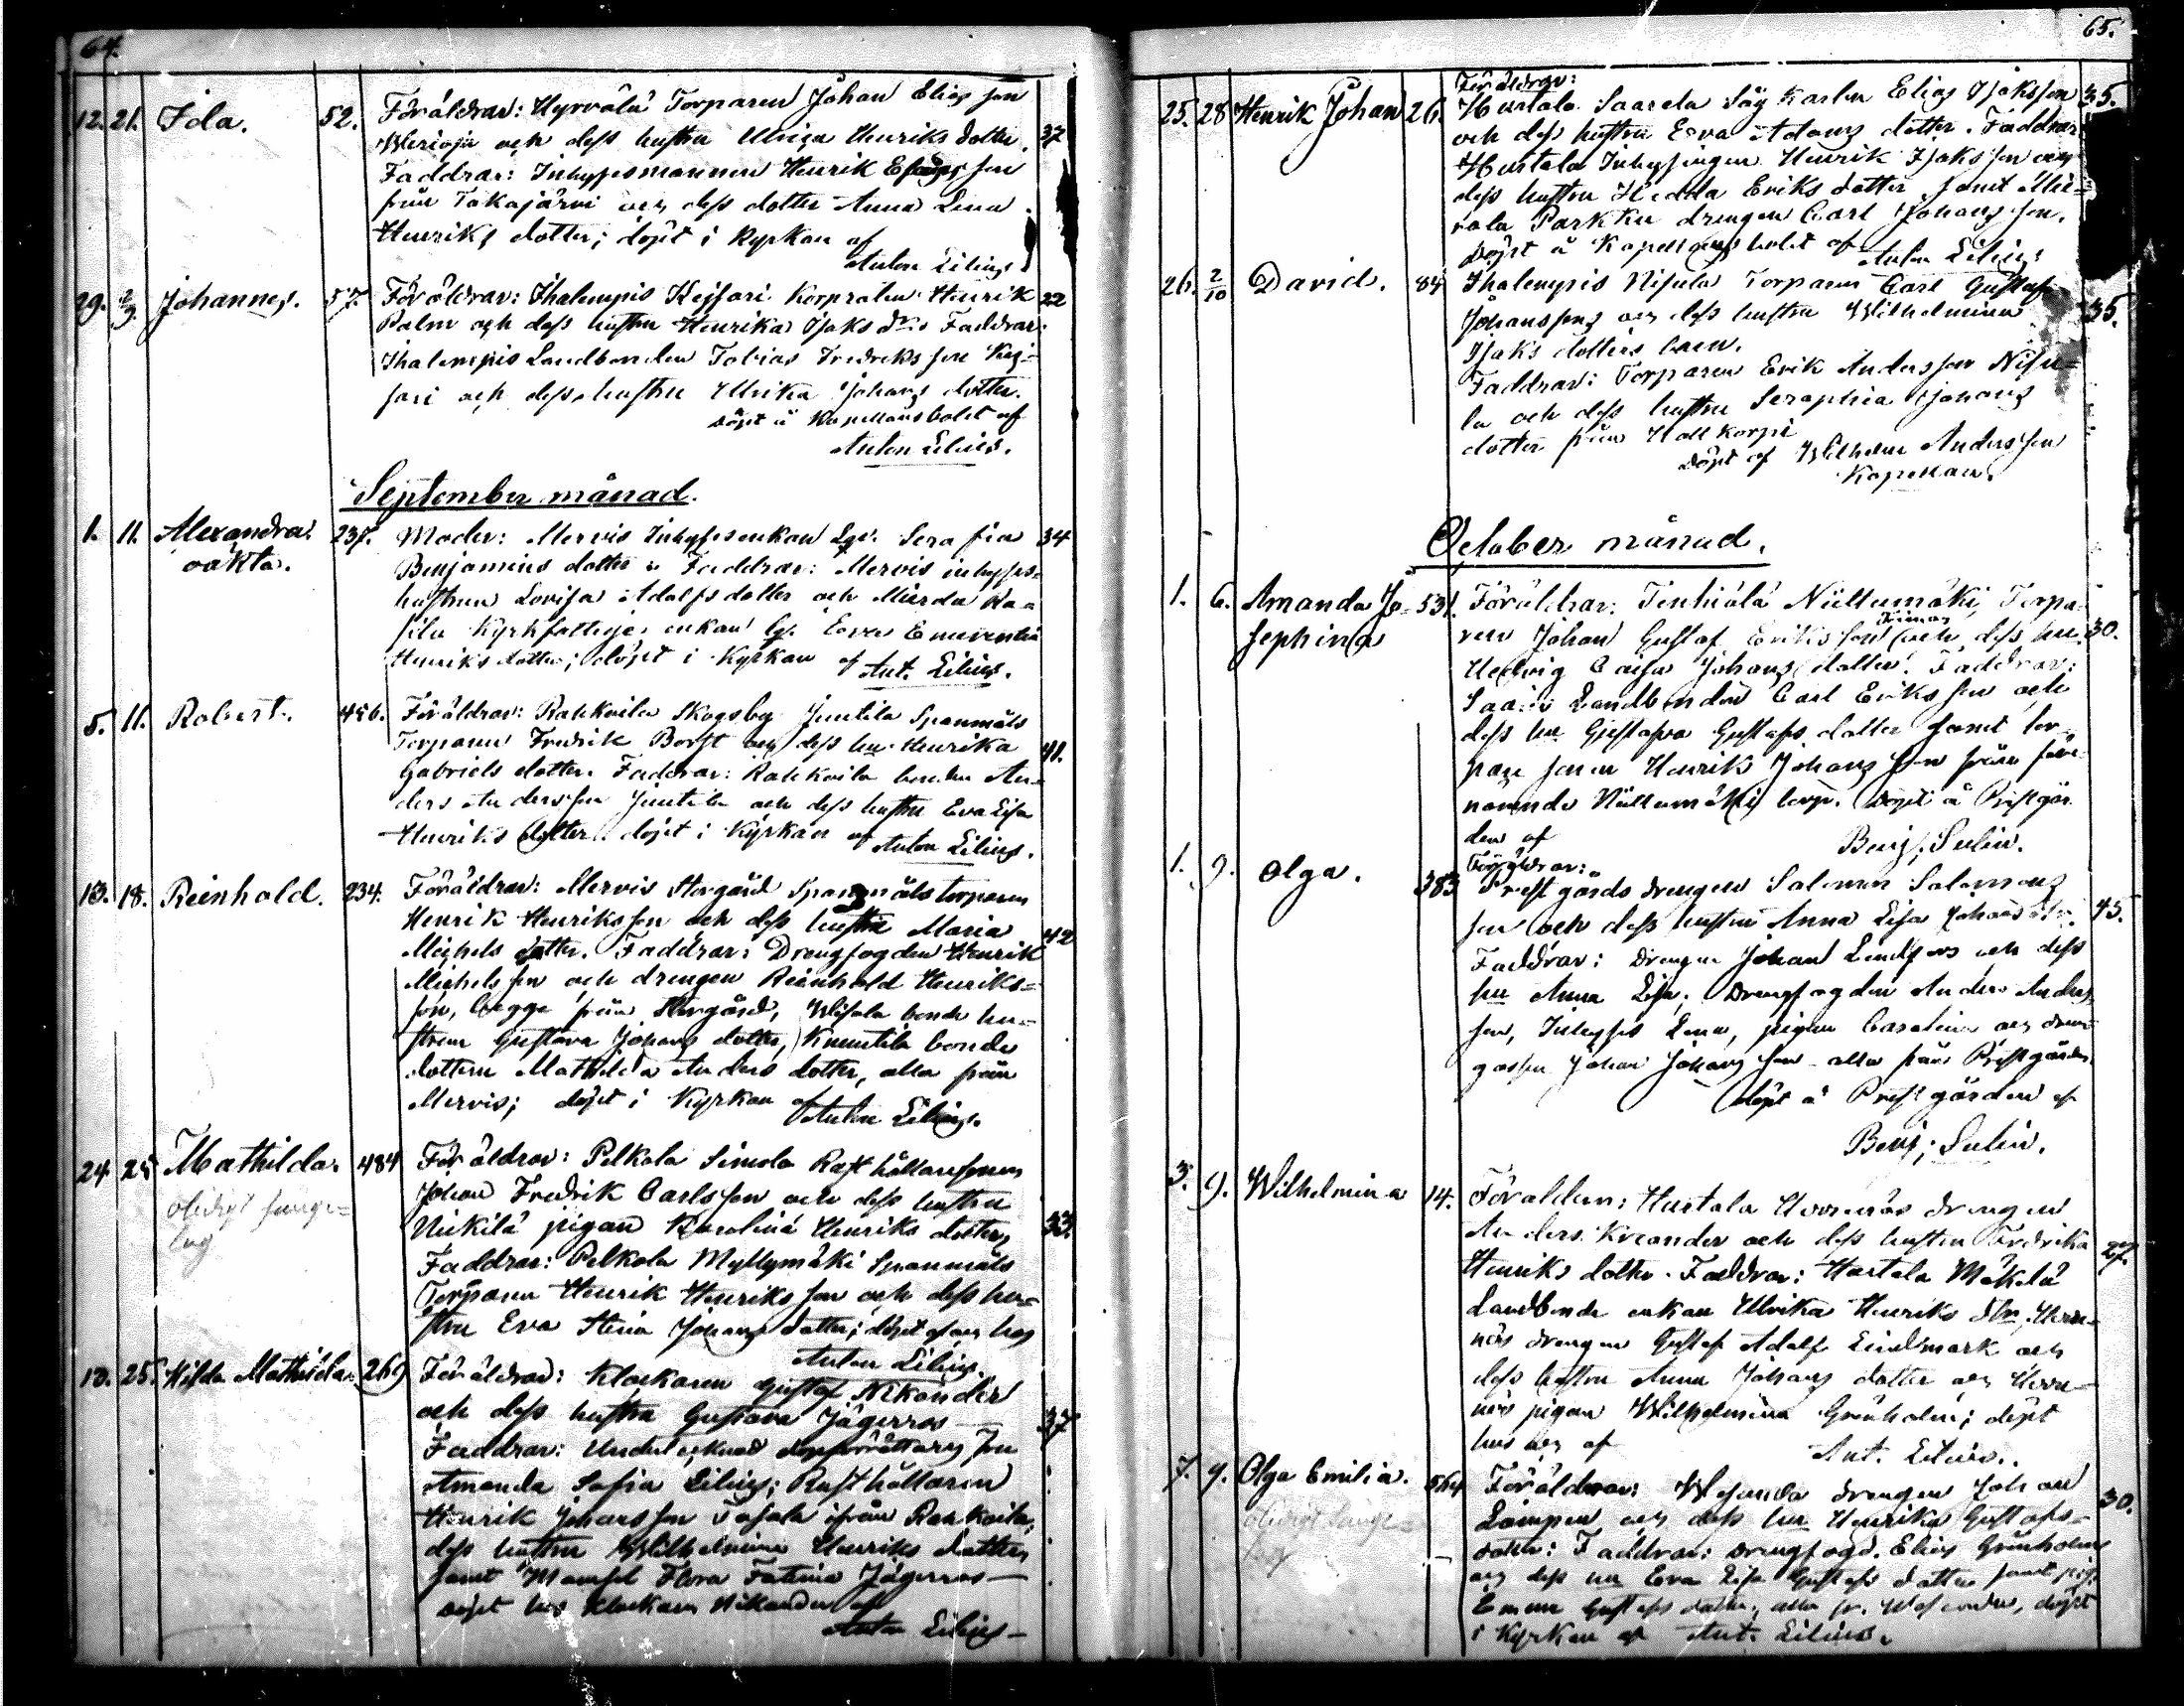 64.
12. 21. Ida. 52. Föräldrar: Hyrvälä Torparen Johan Elias son
och dess hustru Ulrica Henriks dotter. 37
Faddrar: Inhysesmannen Henrik son
från Takajärvi och dess dotter Anna Lena
Henriks dotter; döpt i Kyrkan af
Anton Lilius.
29. 2/9 Johannes. 57. Föräldrar: Ihalempis Kejsari Korpralen Henrik 22
Palm och dess hustru Henrika Isaks dr. Faddrar:
Ihalempis Landbonden Tobias Fredriksson Kej=
sari och dess hustru Ulrika Johans dotter.
döpt å Kapellansbolet af
Anton Lilius.
September månad.
1. 11. Alexandra 237. Moder: Mervis Inhysesenkan Sera fia 34
oäkta. Benjamins dotter. Faddrar: Mervis inhyses=
hustrun Lovisa Adolfs dotter och
Kyrkfattige enkan Eva
Henriks dotter; döpt i Kyrkan af Ant. Lilius.
5. 11. Robert. 456. Föräldrar: Rahkoila Skogsby Juntila Spanmåls
Torparen Fredrik Borst och dess hu Henrika 41.
Gabriels dotter. Faddrar: Rahkoila bonden An=
ders Andersson Juntila och dess hustru Eva Lisa
Henriks dotter. döpt i Kyrkan af Anton Lilius.
13. 18. Reinhold. 234. Föräldrar: Mervis Storgård Spanmåls torparen
Henrik Henriksson och dess hustru Maria 42
Michels dotter. Faddrar: Drengfogden Henrik
Michelsson och drengen Reinhold Henriks=
son, begge från Storgård, bonde hu=
strun Gustava Johans dotter, Knuutila bonde
dottern Mathilda Anders dotter, alla från
Mervis; döpt i Kyrkan af
Anton Lilius.
24. 25 Mathilda. 484 Föräldrar: Pelkola Simola Rusthållaresonen
Johan Fredrik Carlsson och dess hustru
Niekilä pigan Karolina Henriks dotter, 33.
Faddrar: Pelkola Myllymäki Spanmåls
Torparen Henrik Henriksson och dess hu=
stru Eva Stina Johans dotter; döpt
Anton Lilius.
10. 25. Hilda Mathilda. 269 Föräldrar: Klockaren Gustaf Nikander
och dess hustru Gustava Jägerroos 37
Faddrar: Undertecknad
Amanda Sofia Lilius; Rusthållaren
Henrik Johansson från Rahkoila,
dess hustru Wilhelmina Henriks dotter
samt Mamsel Flora Fatima Jägerroos —
döpt hos Klockaren Nikander af
Anton Lilius —
65.
Föräldrar:
25. 28 Henrik Johan 26. Hurtala Saarela Karlen Elias Isaksson 35.
och dess hustru Eva Adams dotter. Faddrar
Hurtala Inhysingen Henrik Isaksson och
dess hustru Hedda Eriks dotter samt
drengen Carl Johansson.
Döpt å Kapellansbolet af Anton Lilius
26. 2/10 David. 84 Ihalempis Nisula Torparen Carl Gustaf
Johanssons och dess hustru Wilhelmina 35.
Isaks dotters barn.
Faddrar: Torparen Erik Andersson Nisu=
la och dess hustru Seraphia Johans
dotter från Hallkorpi
Döpt af Wilhelm Andersson
Kapellan.
October månad.
1. 6. Amanda Jo= 531. Föräldrar: Tinhiälä Niittumäki, Torpa
sephina ren Johan Gustaf Eriksson och dess hu. 30.
Hedvig Caisa Johans dotter. Faddrar:
Saari Landbonden Carl Eriksson och
dess hu Gustafva Gustafs dotter samt tor=
pare sonen Henrik Johansson från före
nämnde Niittumäki torp. Döpt å Prestgår
den af
Benj. Sulin.
Föräldrar:
1. 9. Olga. 383 Prestgårds drengen Salomon Salomons
son och dess hustru Anna Lisa Johans dtr. 45.
Faddrar: Drengen Johan Lindfors och dess
hu Anna Lisa; Drengfogden Anders Anders
son, Inhyses Lena, pigan Carolina och dren
gossen Johan Johansson alla från Prestgården
döpt å Prestgården af
Benj; Sulin.
3. 9. Wilhelmina 14. Föräldrar; Hurtala drengen
Anders Kreander och dess hustru Fredrika 27.
Henriks dotter. Faddrar: Hurtala Mäkelä
Landbonde enkan Ulrika Henriks dtr,
näs drengen Gustaf Adolf Lindmark och
dess hustru Anna Johans dotter och
näs pigan Wilhelmina Grönholm; döpt
hos af
Ant. Lilius.
7. 9. Olga Emilia. 564 Föräldrar: drengen Johan 30.
Lampen och dess hu Henrika Gustafs=
dotter: Faddrar: Drengfogd. Elias Grönholm
och dess hu Eva Lisa Gustafs dotter samt pig.
Emma Gustafs dotter, alla fr. döpt
i Kyrkan af Ant. Lilius.